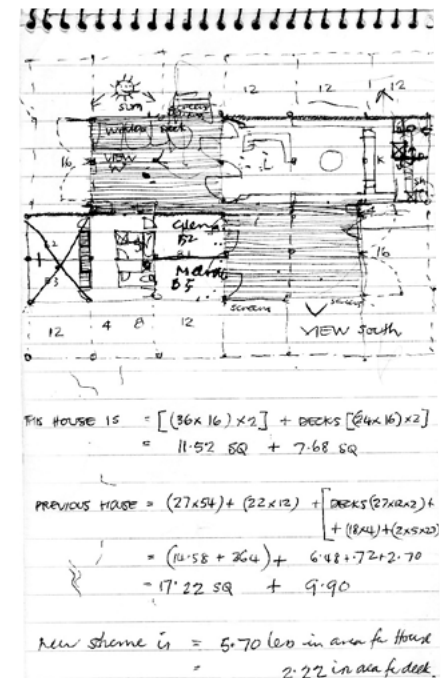 sun
screens
12 12 12
window seat
VIEW
16
K
Glen
B2
16
screens
screens
12 4 8 12
VIEW South
THIS HOUSE IS = [(36x16)x2] + DECKS [(24x16)x2]
= 11.52 SQ + 7.68 SQ
PREVIOUS HOUSE = (27x54)+ (22x12) + [DECKS (27x12x2)+
+ (18x4)+(2x5x27)
= (14.58 + 264) + 6.48+.72+2.70
= 17.22 SQ + 9.90
New scheme is = 5.70 less in area for House
= 2.22 in area for deck.